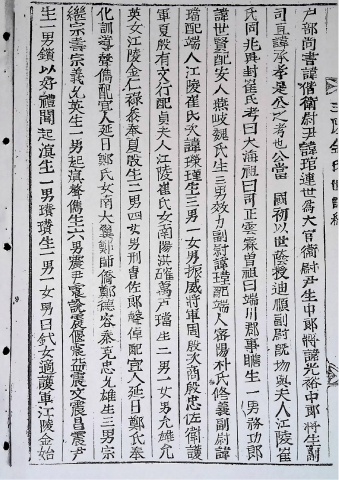 户部尚書諱偕衛尉尹諱琯連世為大官衛尉尹生中郎將諱光裕中郎將生翮
司直諱承孝是公之考也公當 國初以世蔭授迪順副尉旣歿與夫人江陵崔
氏同兆再封崔氏考曰大海祖曰司正雲霖曽祖曰端川郡事瞻生一男務功郎
諱世賢配安人燕岐魏氏生三男效力副尉諱瑋配端人密陽朴氏修義副尉諱
璠配端人江陵崔氏次諱璨瑾生三男一女男振威將軍周殷次商殷忠佐衛護
軍夏殷有文行配貞夫人江陵崔氏女南陽洪確萬戸璠生二男一女男允雄允
英女江陵金仁祿泰泰夏殷生二男四女男刑曹佐郎聲倬配宜人延日鄭氏奉
化訓導聲儁配宜人延日鄭氏女南大翼鄭師僑鄭德容泰克忠允雄生三男宗
繼宗壽宗義允英生一男起滇聲儁生六男震尹震說震偃震益震文震昌震尹
生一男鑽以好禮聞起滇生一男璜璜生一男一女男曰釴女適護軍江陵金始